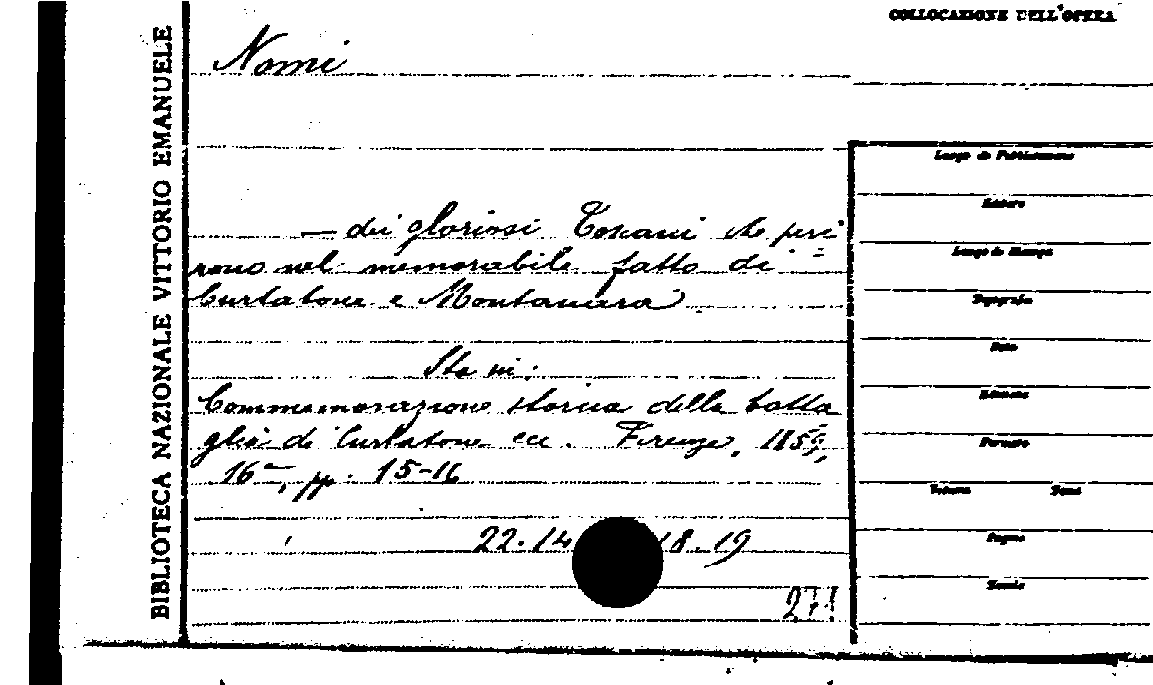 COLLOCAZIONE DELL'OPERA
BIBLIOTECA NAZIONALE VITTORIO EMANUELE
Nomi
— dei gloriosi Toscani che peri=
rono nel memorabile fatto di
Curtatone e Montanara
Sta in:
Commemorazione storica della batta
glia di Curtatone ecc. Firenze, 1859,
16°, pp. 15-16
22.14 18.19
271
Luogo di Pubblicazione
Editore
Luogo di Stampa
Tipografia
Data
Edizione
Formato
Volume Tomi
Pagine